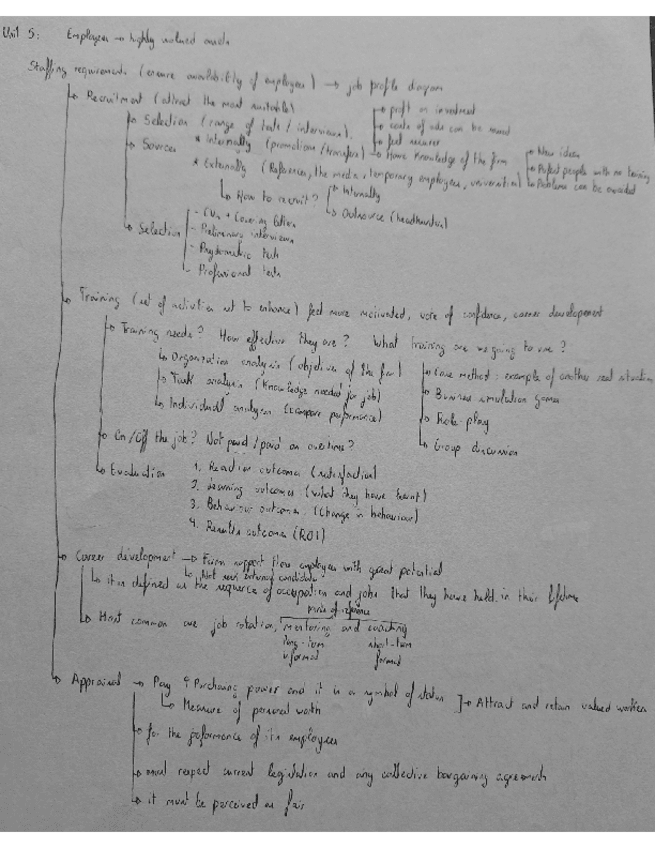 Unit 5: Employees → highly valued assets
Staffing requirements (ensure availability of employees) → job profile diagram
↳ Recruitment (attract the most suitable)
→ profit on investment
→ costs of ads can be saved
→ feel nearer
↳ Selection (range of tests / interviews)
↳ Sources * Internally (promotions / transfers) → Have Knowledge of the firm
→ New ideas
→ people with no training
→ Problems can be avoided
* Externally (References, the media, temporary employees, universities)
↳ How to recruit?
→ Internally
↳ Outsource (headhunters)
↳ Selection
- CVs + Covering letters
- Preliminary interviews
- Psychometric tests
- Professional tests
↳ Training (set of activities set to enhance) feel more motivated, of confidence, career development
↳ Training needs? How effective they are? What training are we going to use?
↳ Organization analysis (objectives of the firm)
↳ Task analysis (Knowledge needed for job)
↳ Individual analysis (compare performance)
↳ Case method: example of another real situation
↳ Business simulation games
↳ Role play
↳ Group discussion
↳ On/Off the job? Not paid / paid as overtime?
↳ Evaluation
1. Reaction outcomes (satisfaction)
2. Learning outcomes (what they have learnt)
3. Behaviour outcomes (Change in behaviour)
4. Results outcomes (ROI)
↳ Career development → Firms support those employees with great potential
↳ Not new external candidates
↳ it is defined as the sequence of occupation and jobs that they have held in their lifetime
↳ Most common are job rotation, mentoring and coaching
long-term informal
short-term formal
↳ Appraisal → Pay Purchasing power and it is a symbol of status
↳ Measure of personal worth
]→ Attract and retain valued workers
↳ for the performance of its employees
↳ must respect current legislation and any collective bargaining agreements
↳ it must be perceived as fair